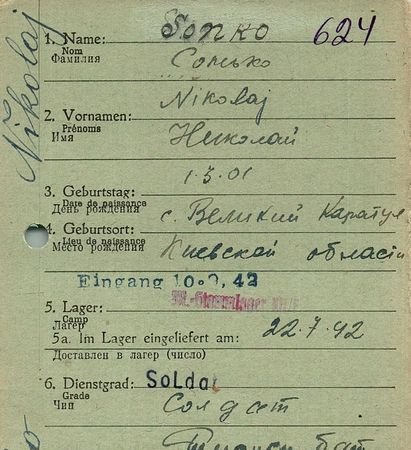 Nikolaj
1. Name: Sonko 624
Nom
Фамилия Сонько
Nikolaj
2. Vornamen:
Prénoms
Имя Николай
1.5.01
3. Geburtstag:
Date de naissance
День рождения с. Великий Каратул
4. Geburtsort:
Lieu de naissance
Место рождения Киевской области
Eingang 10.9.42
5. Lager:
Camp
Лагер
5a. Im Lager eingeliefert am: 22.7.42
Доставлен в лагер (число)
6. Dienstgrad: Soldat
Grade
Чин Солдат
бат